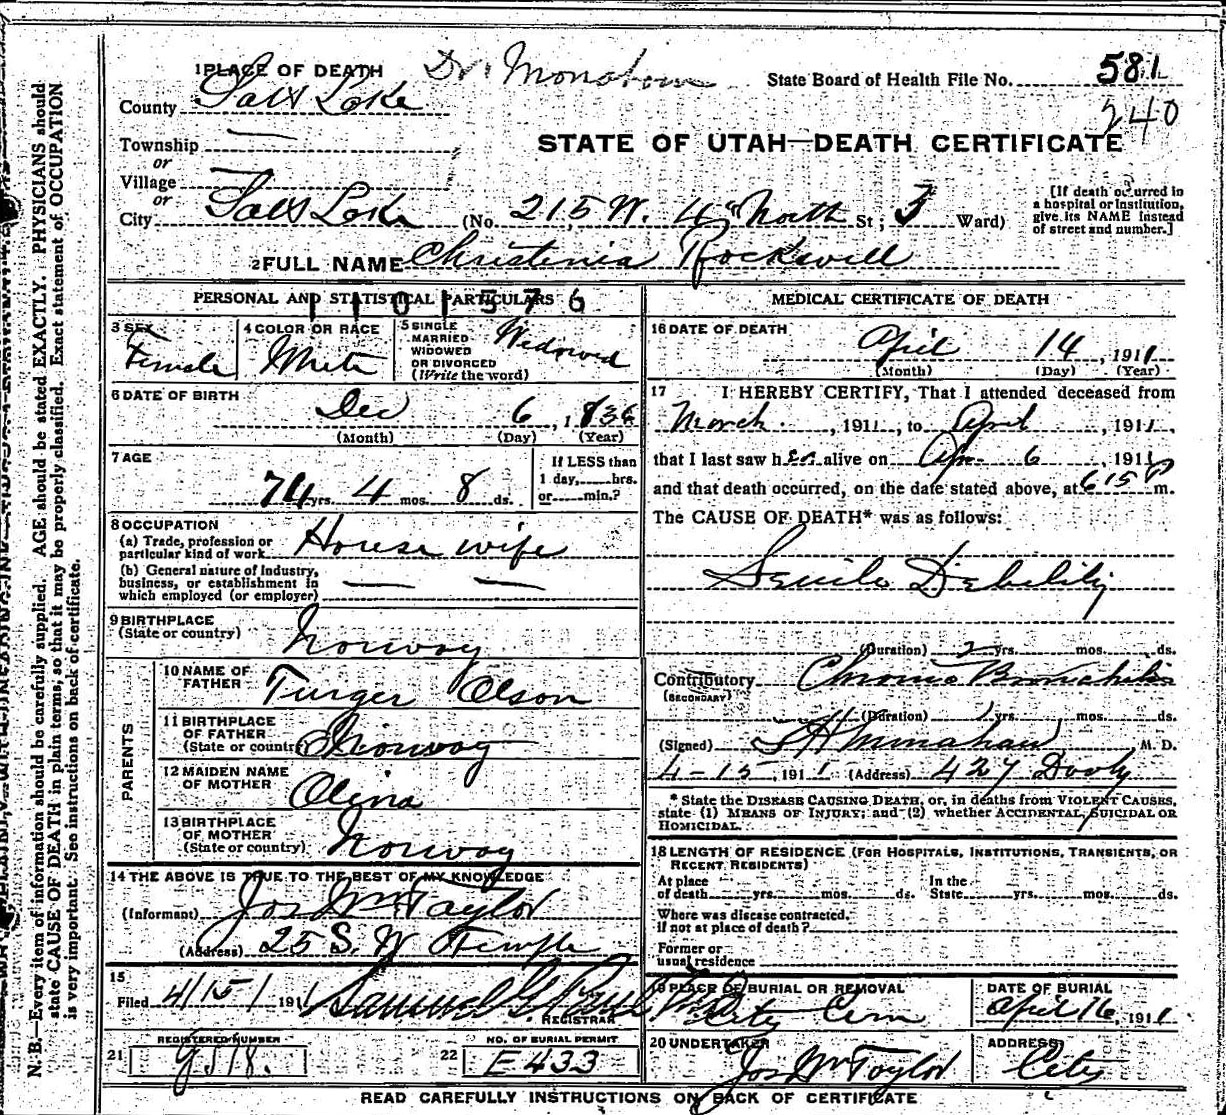 1 PLACE OF DEATH
Dr. Monahan
State Board of Health File No. 581
240
County Salt Lake
STATE OF UTAH—DEATH CERTIFICATE
Township —
or
Village —
or
City Salt Lake (No. 215 W. 4" North St; 3 Ward)
[If death occurred in
a hospital or institution,
give its NAME instead
of street and number.]
2 FULL NAME Christenia Rockwell
PERSONAL AND STATISTICAL PARTICULARS
1101576
3 SEX
Female
4 COLOR OR RACE
White
5 SINGLE
MARRIED
WIDOWED
OR DIVORCED
(Write the word)
Widowed
6 DATE OF BIRTH
Dec 6, 1836
(Month) (Day) (Year)
7 AGE
74 yrs. 4 mos. 8 ds.
If LESS than
1 day, hrs.
or min.?
8 OCCUPATION
(a) Trade, profession or
particular kind of work House wife
(b) General nature of industry,
business, or establishment in
which employed (or employer) — —
9 BIRTHPLACE
(State or country) Norway
PARENTS
10 NAME OF
FATHER Turger Olson
11 BIRTHPLACE
OF FATHER
(State or country) Norway
12 MAIDEN NAME
OF MOTHER Olina
13 BIRTHPLACE
OF MOTHER
(State or country) Norway
14 THE ABOVE IS TRUE TO THE BEST OF MY KNOWLEDGE
(Informant) Jos Wm Taylor
(Address) 25 S. W Temple
15
Filed 4/15/1911 Samuel G Paul
REGISTRAR
REGISTERED NUMBER
21 G518.
NO. OF BURIAL PERMIT
22 E433
MEDICAL CERTIFICATE OF DEATH
16 DATE OF DEATH
April 14, 1911
(Month) (Day) (Year)
17 I HEREBY CERTIFY, That I attended deceased from
March, 1911, to April, 1911,
that I last saw her alive on Apr 6, 1911
and that death occurred, on the date stated above, at 615 P m.
The CAUSE OF DEATH* was as follows:
Senile Debility
(Duration) 2 yrs. mos. ds.
Contributory Chronic Bronchitis
(SECONDARY)
(Duration) 1 yrs. mos. ds.
(Signed) Monahan M. D.
4-15, 1911 (Address) 427 Dooly
* State the DISEASE CAUSING DEATH, or, in deaths from VIOLENT CAUSES,
state (1) MEANS OF INJURY; and (2) whether ACCIDENTAL, SUICIDAL OR
HOMICIDAL.
18 LENGTH OF RESIDENCE (FOR HOSPITALS, INSTITUTIONS, TRANSIENTS, OR
RECENT RESIDENTS)
At place
of death yrs. mos. ds.
In the
State yrs. mos. ds.
Where was disease contracted,
if not at place of death?
Former or
usual residence
19 PLACE OF BURIAL OR REMOVAL
City Cem
DATE OF BURIAL
April 16, 1911
20 UNDERTAKER
Jos Wm Taylor
ADDRESS
City
READ CAREFULLY INSTRUCTIONS ON BACK OF CERTIFICATE
N. B.—Every item of information should be carefully supplied. AGE should be stated EXACTLY. PHYSICIANS should
state CAUSE OF DEATH in plain terms, so that it may be properly classified. Exact statement of OCCUPATION
is very important. See instructions on back of certificate.